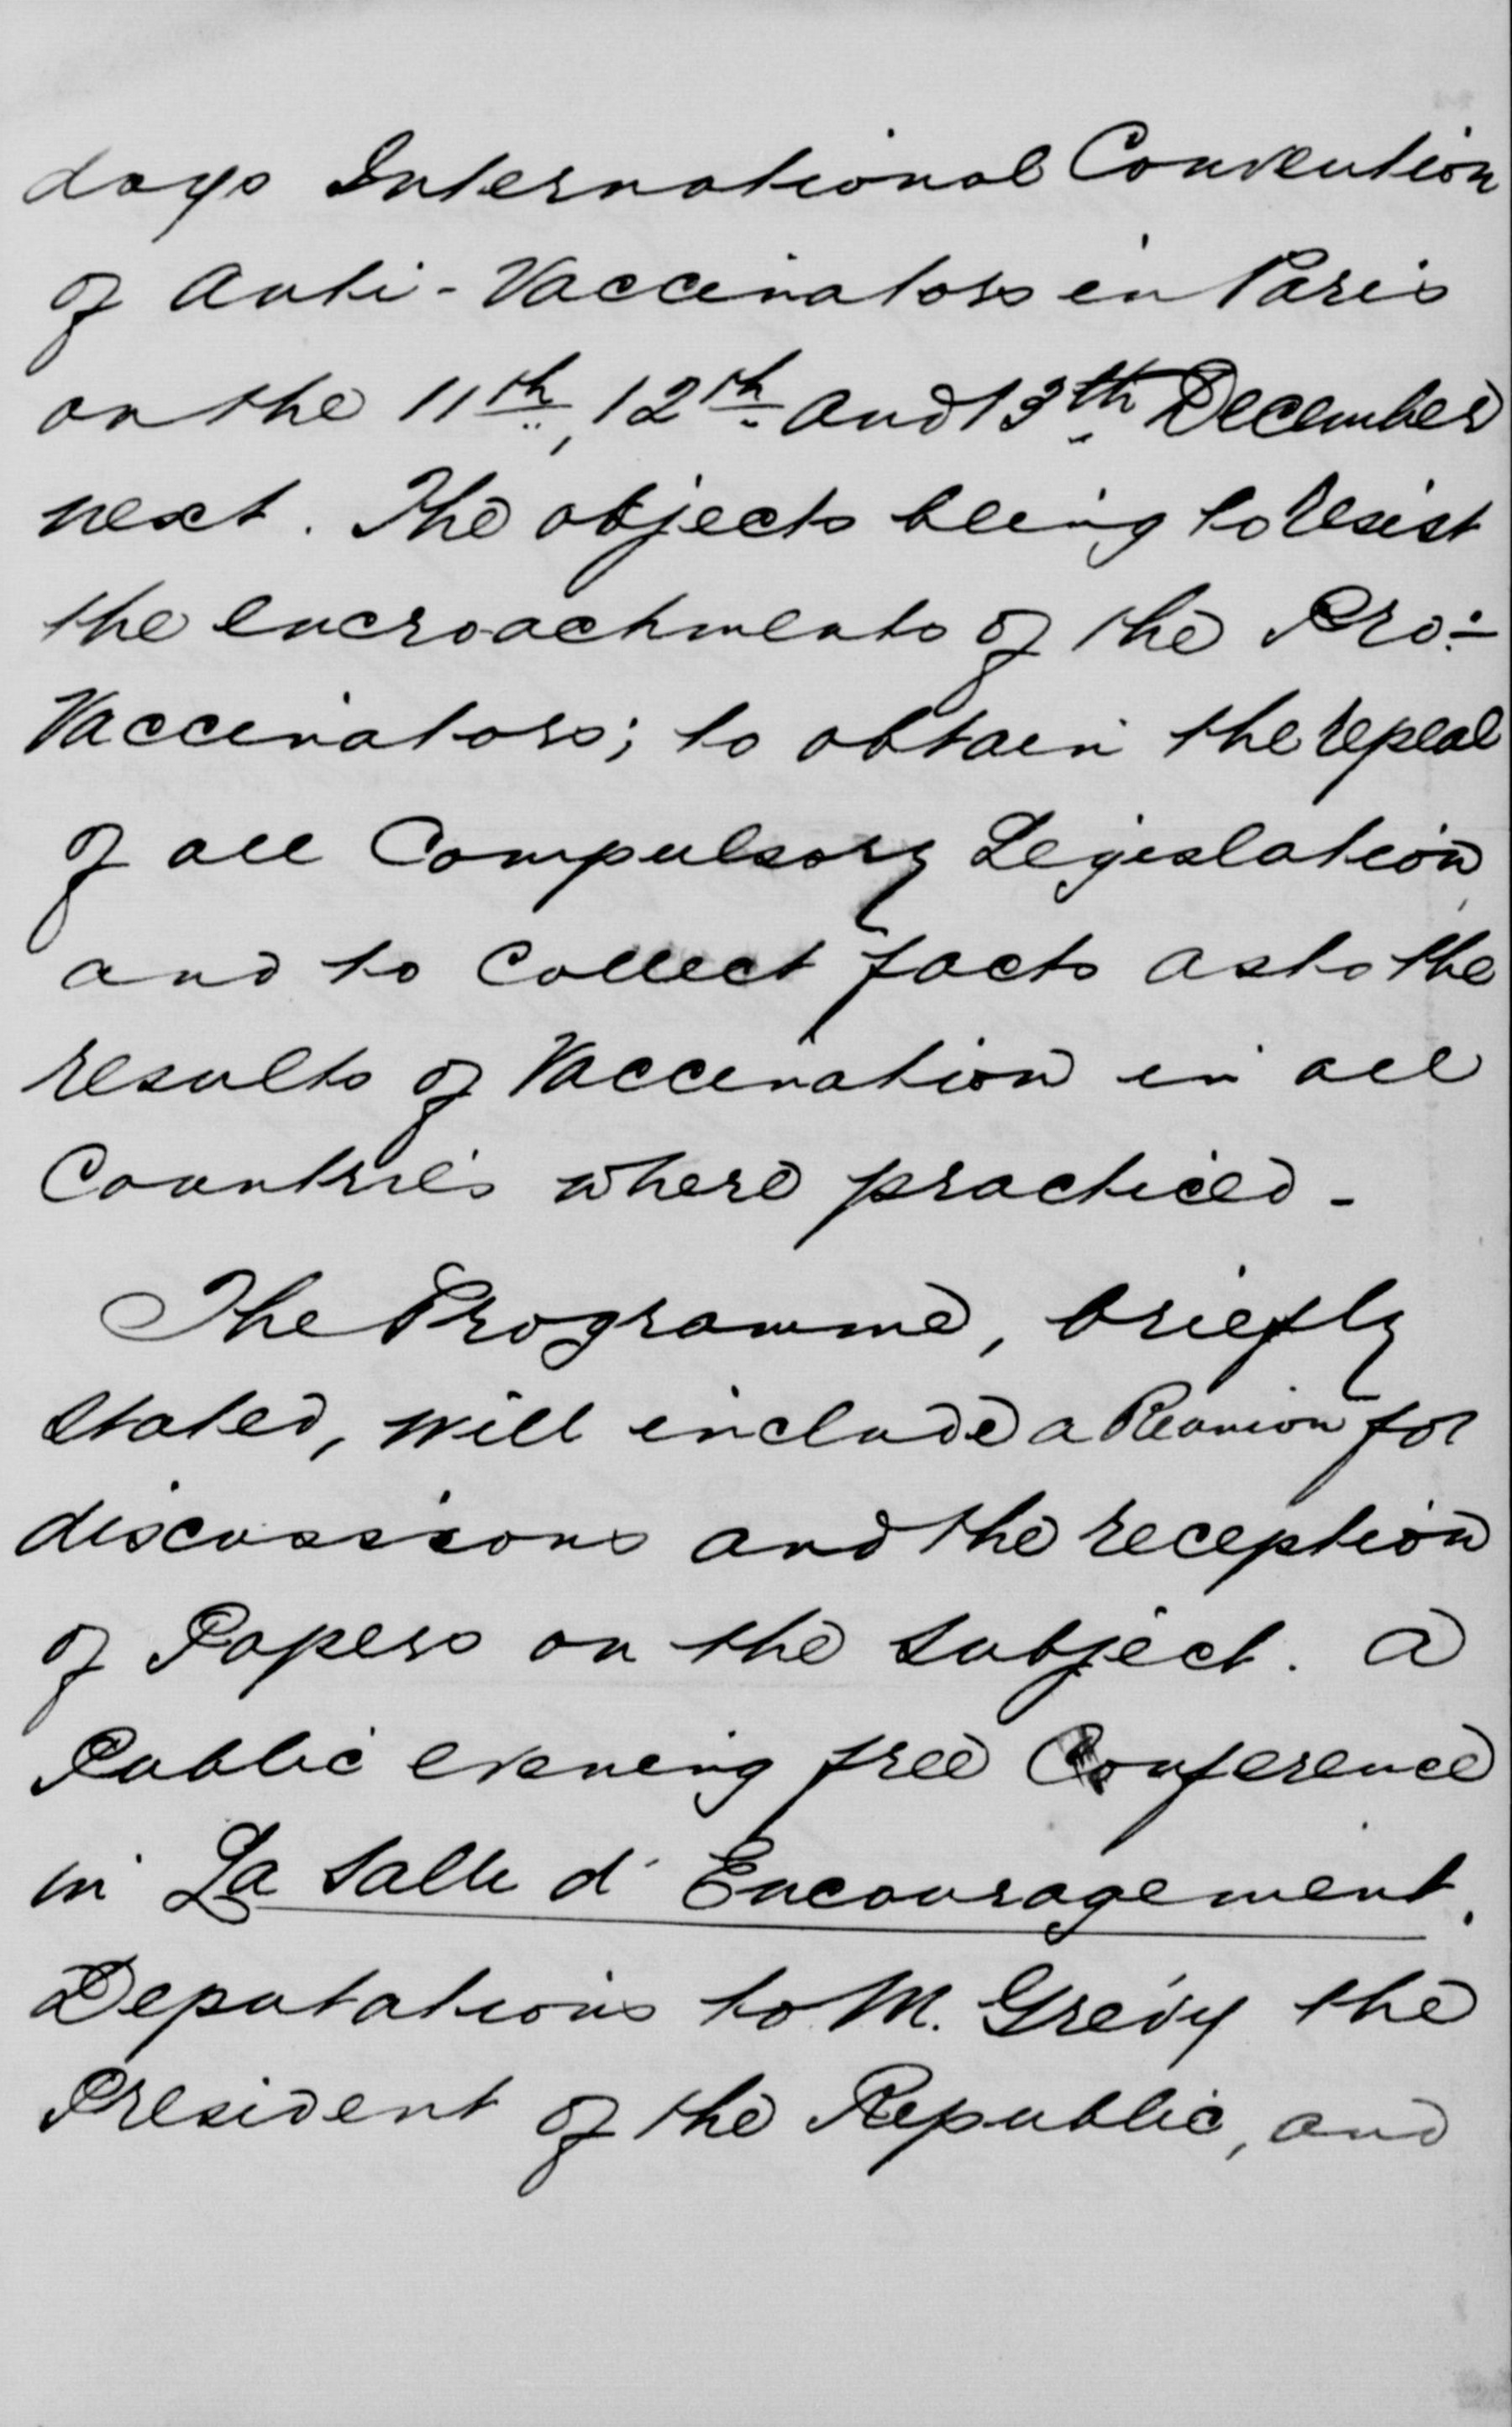 days International Convention
of Anti-Vaccinators in Paris
on the 11th, 12th and 13th December
next. The objects being to resist
the encroachments of the Pro-
Vaccinators; to obtain the repeal
of all Compulsory Legislation,
and to Collect facts as to the
results of Vaccination in all
Countries where practiced -
The Programme, briefly
stated, will include a Reunion for
discussions and the reception
of Papers on the subject. A
Public evening free Conference
in La Salle d'Encouragement.
Deputations to M. Grévy the
President of the Republic, and